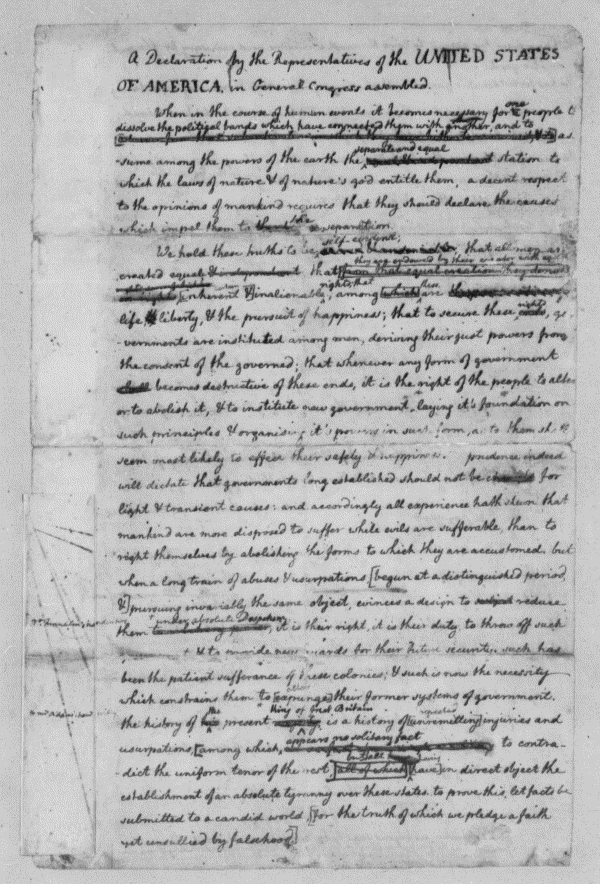 A Declaration by the Representatives of the UNITED STATES
OF AMERICA, in General Congress assembled.
When in the course of human events it becomes necessary for one people to
dissolve the political bands which have connected them with another, and to
as-
separate and equal
-sume among the powers of the earth the station to
which the laws of nature & of nature's god entitle them, a decent respect
to the opinions of mankind requires that they should declare the causes
which impel them to the separation.
self-evident;
We hold these truths to be that all men are
they are endowed by their creator with
created equal & that [from that equal creation they derive
rights; that
[inherent &] inalienable among [which] these are
life & liberty, & the pursuit of happiness; that to secure these rights, go-
-vernments are instituted among men, deriving their just powers from
the consent of the governed; that whenever any form of government
becomes destructive of these ends, it is the right of the people to alter
or to abolish it, & to institute new government, laying it's foundation on
such principles & organising it's powers in such form, as to them shall
seem most likely to effect their safety & happiness. prudence indeed
will dictate that governments long established should not be changed for
light & transient causes: and accordingly all experience hath shewn that
mankind are more disposed to suffer while evils are sufferable, than to
right themselves by abolishing the forms to which they are accustomed. but
when a long train of abuses & usurpations [begun at a distinguished period,
&] pursuing invariably the same object, evinces a design to reduce
under absolute Despotism
them it is their right, it is their duty to throw off such
& to provide new guards for their future security. such has
been the patient sufferance of these colonies; & such is now the necessity
which constrains them to [expunge] their former systems of government.
the King of Great Britain
the history of present is a history of [unremitting] injuries and
appears no solitary fact
usurpations, [among which, to contra-
-dict the uniform tenor of the rest [all of which] [have] in direct object the
establishment of an absolute tyranny over these states. to prove this, let facts be
submitted to a candid world [for the truth of which we pledge a faith
yet unsullied by falsehood]